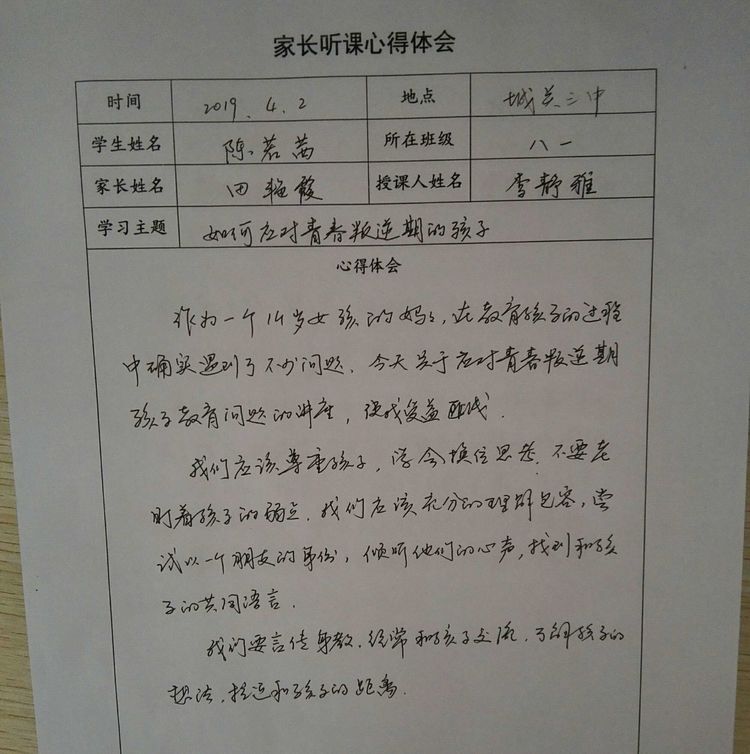 家长听课心得体会
时间 2019.4.2 地点 城关三中
学生姓名 陈若茜 所在班级 八一
家长姓名 田艳霞 授课人姓名 李静雅
学习主题 如何应对青春叛逆期的孩子
心得体会
作为一个14岁女孩的妈妈,在教育孩子的过程
中确实遇到了不少问题,今天关于应对青春叛逆期
孩子教育问题的讲座,使我受益匪浅.
我们应该尊重孩子,学会换位思考,不要老
盯着孩子的弱点.我们应该充分的理解包容,尝
试以一个朋友的身份,倾听他们的心声,找到和孩
子的共同语言.
我们要言传身教.经常和孩子交流,了解孩子的
想法,拉近和孩子的距离.